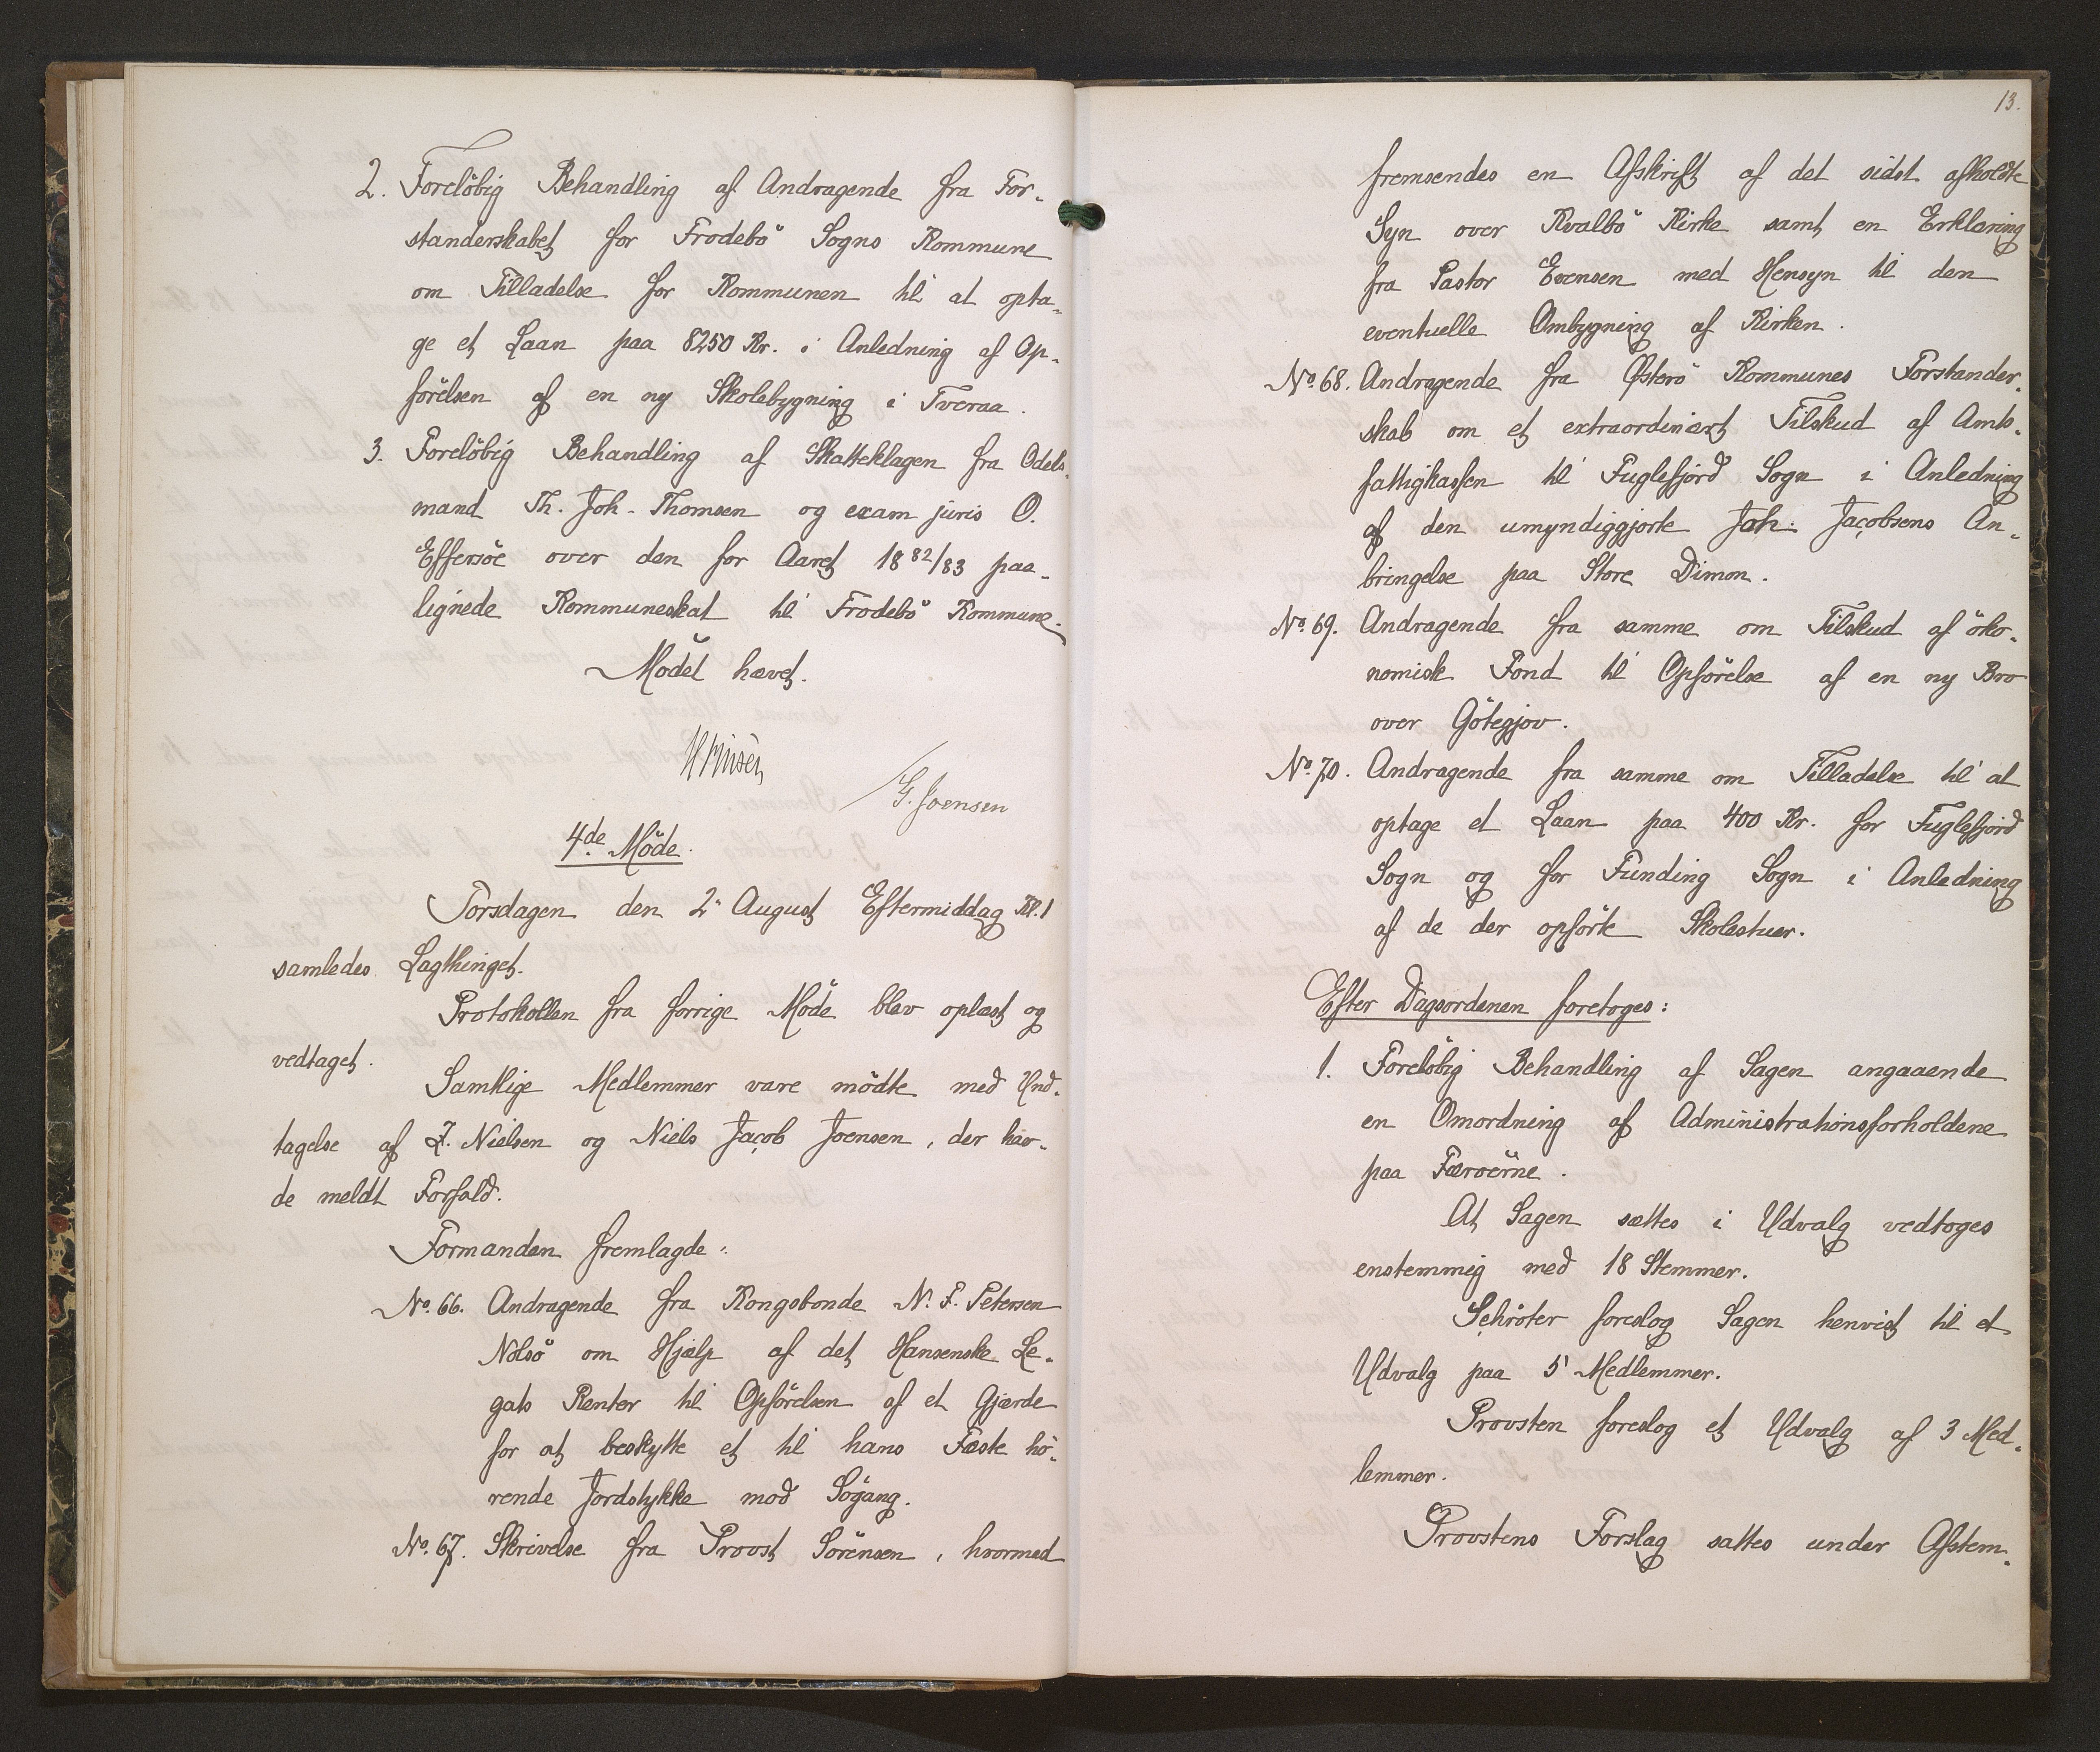 2. Foreløbig Behandling af Andragende fra For-
standerskabet for Frodebö Sogns Kommune
om Tilladelse for Kommunen til at opta-
ge et Laan paa 8250 Kr. i Anledning af Op-
förelsen af en ny Skolebygning i Tveraa.
3. Forelöbig Behandling af Skatteklagen fra Odels-
mand Th. Joh. Thomsen og exam juris O.
Effersöe over den for Aaret 1882/83 paa-
lignede Kommuneskat til Frodebö Kommune.
Mödet hævet.
H. Finsen
J. Joensen
4de Möde.
Torsdagen den 2. August Eftermiddag Kl. 1
samledes Lagthinget.
Protokollen fra forrige Möde blev oplæst og
vedtaget.
Samtlige Medlemmer vare mödte med Und-
tagelse af Z. Nielsen og Niels Jacob Joensen, der hav-
de meldt Forfald.
Formanden fremlagde:
No. 66. Andragende fra Kongsbonde N. F. Petersen
Nolsö om Hjælp af det Hansenske Le-
gats Renter til Opförelsen af et Gjærde
for at beskytte et til hans Fæste hö-
rende Jordstykke mod Sögang.
No. 67. Skrivelse fra Provst Sörensen, hvormed
13.
fremsendes en Afskrift af det sidst afholdte
Syn over Kvalbö Kirke samt en Erklæring
fra Pastor Evensen med Hensyn til den
eventuelle Ombygning af Kirken.
No. 68. Andragende fra Østerö Kommunes Forstander-
skab om et extraordinært Tilskud af Amts-
fattigkassen til Fuglefjord Sogn i Anledning
af den umyndiggjorte Joh. Jacobsens An-
bringelse paa Store Dimon.
No. 69. Andragende fra samme om Tilskud af öko-
nomisk Fond til Opförelse af en ny Bro
over Götegjov.
No. 70. Andragende fra samme om Tilladelse til at
optage et Laan paa 400 Kr. for Fuglefjord
Sogn og for Funding Sogn i Anledning
af de der opförte Skolestuer.
Efter Dagsordenen foretoges:
1. Forelöbig Behandling af Sagen angaaende
en Omordning af Administrationsforholdene
paa Færoerne.
At Sagen sættes i Udvalg vedtoges
enstemmig med 18 Stemmer.
Schröter foreslog Sagen henvist til et
Udvalg paa 5 Medlemmer.
Provsten foreslog et Udvalg af 3 Med-
lemmer.
Provstens Forslag sattes under Afstem-